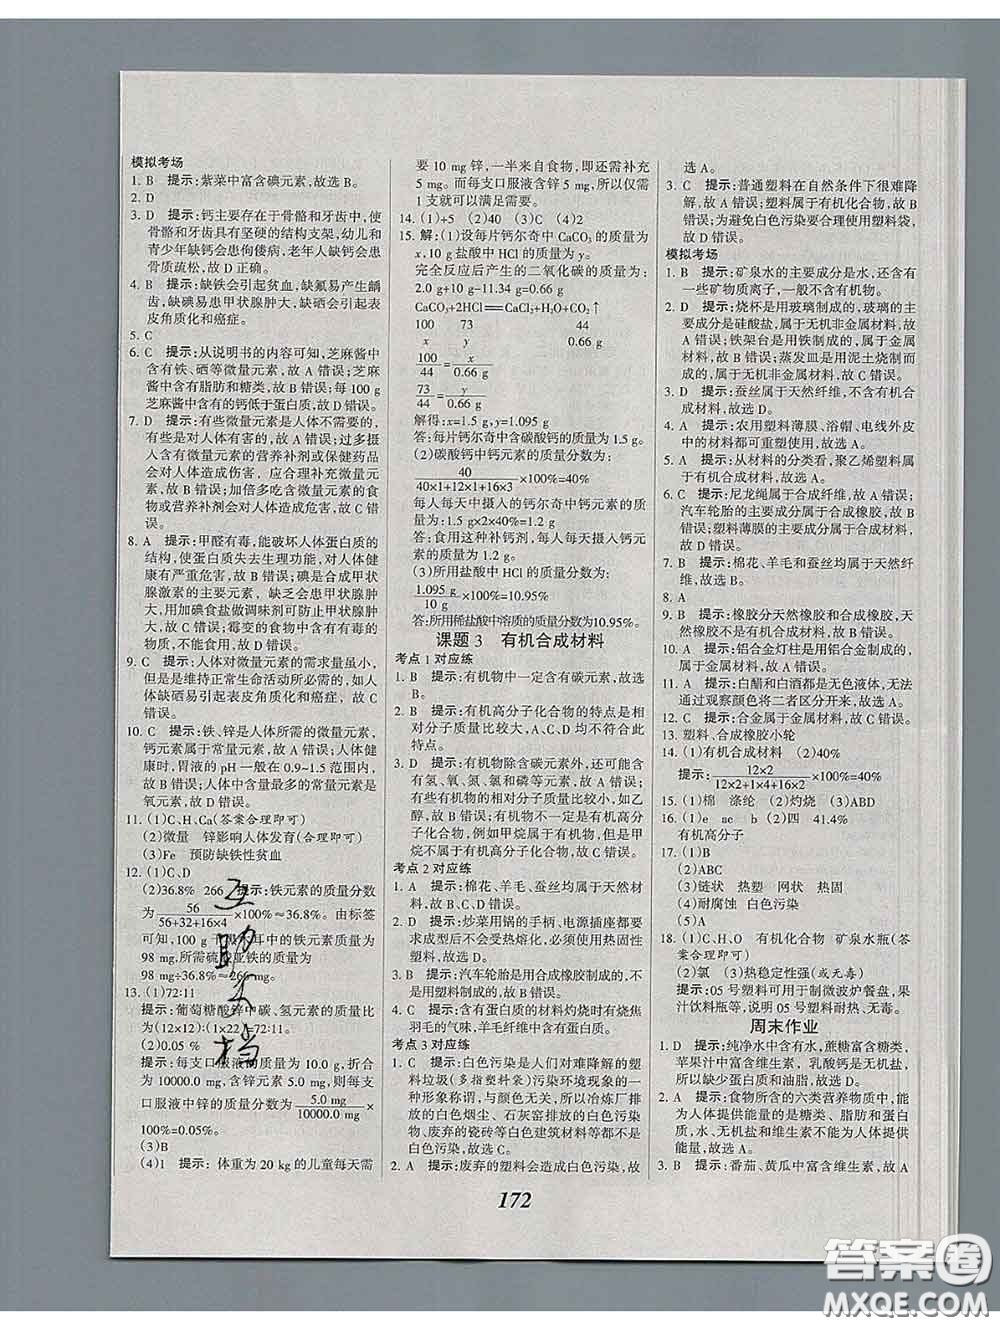 模拟考场
1. B　提示:紫菜中富含碘元素,故选 B。
2. D
3. D　提示:钙主要存在于骨骼和牙齿中,使
骨骼和牙齿具有坚硬的结构支架,幼儿和
青少年缺钙会患佝偻病,老年人缺钙会患
骨质疏松,故 D 正确。
4. B　提示:缺铁会引起贫血,缺氟易产生龋
齿,缺碘易患甲状腺肿大,缺硒会引起表
皮角质化和癌症。
5. C
6. C　提示:从说明书的内容可知,芝麻酱中
含有铁、硒等微量元素,故 A 错误;芝麻
酱中含有脂肪和糖类,故 B 错误;每 100 g
芝麻酱中含有的钙低于蛋白质,故 D 错误。
7. D　提示:有些微量元素是人体不需要的,
有些是对人体有害的,故 A 错误;过多摄
人含有微量元素的营养补剂或保健药品
会对人体造成伤害,应合理补充微量元
素,故 B 错误;增加多倍含有微量元素的食
物或营养补剂会对人体造成危害,故 C 错
误。
8. A　提示:甲醛有毒,能破坏人体蛋白质的
结构,使蛋白质失去生理功能,对人体健
康有严重危害,故 B 错误;碘是合成甲状
腺激素的主要元素,缺乏会患甲状腺肿
大,用加碘食盐做调味剂可防止甲状腺肿
大,故 C 错误;霉变的食物中含有有毒的
物质,不能食用,故 D 错误。
9. C　提示:人体对微量元素的需求量虽小,
但是是维持正常生命活动所必需的,如人
体缺硒易引起表皮角质化和癌症,故 C 错
误。
10. C　提示:铁、锌是人体所需的微量元素,
钙元素属于常量元素,故 A 错误;人体健
康时,胃液的 pH 一般在 0.9~1.5 范围内,
故 B 错误;人体中含量最多的常量元素是
氧元素,故 D 错误。
11. (1)C、H、Ca(答案合理即可)
(2)微量　锌影响人体发育(合理即可)
(3)Fe　预防缺铁性贫血
12. (1)C、D
(2)36.8%　266　提示:铁元素的质量分数
为 56/(56+32+16×4) ×100%≈36.8%。由标签
98 mg÷36.8%≈266 mg。
13. (1)72∶11
提示:葡萄糖酸锌中碳、氢元素的质量比为
(12×12)∶(1×22)=72∶11。
(2)0.05 %
提示:每支口服液的质量为 10.0 g,折合
为 10000.0 mg,含锌元素 5.0 mg,则每支
口服液中锌的质量分数为 5.0 mg/10000.0 mg ×
100%=0.05%。
(3)B
(4)1　提示:体重为 20 kg 的儿童每天需
要 10 mg 锌,一半来自食物,即还需补充
5 mg。而每支口服液含锌 5 mg,所以仅需
1 支就可以满足需要。
14. (1)+5　(2)40　(3)C　(4)2
15. 解:(1)设每片钙尔奇中 CaCO₃ 的质量为
x,10 g 盐酸中 HCl 的质量为 y。
完全反应后产生的二氧化碳的质量为:
2.0 g+10 g-11.34 g=0.66 g
CaCO₃+2HCl══CaCl₂+H₂O+CO₂↑
100　73　44
x　y　0.66 g
100/44=x/0.66 g
73/44=y/0.66 g
解得:x=1.5 g,y=1.095 g
答:每片钙尔奇中含碳酸钙的质量为 1.5 g。
(2)碳酸钙中钙元素的质量分数为:
40/(40×1+12×1+16×3) ×100%=40%
每人每天中摄入的钙尔奇中钙元素的
质量为:1.5 g×2×40%=1.2 g
答:食用这种补钙剂,每人每天摄入钙元
素的质量为 1.2 g。
(3)所用盐酸中 HCl 的质量分数为:
1.095 g/10 g ×100%=10.95%
答:所用稀盐酸中溶质的质量分数为10.95%。
课题 3　有机合成材料
考点 1 对应练
1. B　提示:有机物中一定含有碳元素,故选
B。
2. B　提示:有机高分子化合物的特点是相
对分子质量比较大,A、C、D 均不符合此
特点。
3. D　提示:有机物除含碳元素外,还可能含
有氢、氧、氮、氯和磷等元素,故 A 错误;
有些有机物的相对分子质量比较小,如乙
醇,故 B 错误;有些有机物不是有机高分
子化合物,例如甲烷属于有机物,但是甲
烷不属于有机高分子化合物,故 C 错误。
考点 2 对应练
1. A　提示:棉花、羊毛、蚕丝均属于天然材
料,故选 A。
2. D　提示:炒菜用锅的手柄、电源插座都要
求成型后受热不熔化,必须使用热固性
塑料。
3. B　提示:汽车轮胎是用合成橡胶制成的,
不是用塑料制成的。
4. C　提示:含有蛋白质的材料灼烧时有烧焦
羽毛的气味,羊毛纤维中含有蛋白质。
考点 3 对应练
1. C　提示:白色污染是人们对难降解的塑
料垃圾(多指塑料袋)污染环境现象的一
种形象称谓,与颜色无关,所以冶炼厂排
放的白色烟尘、石灰窑排放的白色粉尘污
染物、废弃的瓷砖等白色建筑材料等都不
是白色污染,故选 C。
2. A　提示:废弃的塑料会造成白色污染,故
选 A。
3. C　提示:普通塑料在自然条件下很难降
解,故 A 错误;塑料属于有机化合物,故 B
错误;为避免白色污染要合理使用塑料袋,
故 D 错误。
模拟考场
1. B　提示:矿泉水的主要成分是水,还含有
一些矿物质离子,一般不含有机物。
2. D　提示:烧杯是用玻璃制成的,玻璃的主
要成分是硅酸盐,属于无机非金属材料,故
A 错误;铁架台是用铁制成的,属于金属
材料,故 B 错误;蒸发皿是用泥土烧制而
成的,属于无机非金属材料,故 C 错误。
3. D　提示:蚕丝属于天然纤维,不含有机合
成材料,故选 D。
4. A　提示:农用塑料薄膜、浴帽、电线外皮
中的材料都可重塑加工,故选 A。
5. A　提示:从材料的分类看,聚乙烯塑料属
于有机合成材料,故选 A。
6. C　提示:尼龙绳属于合成纤维,故 A 错误;
汽车轮胎的主要成分属于合成橡胶,故 B
错误;塑料薄膜的主要成分属于合成材料,
故 D 错误。
7. D　提示:棉花、羊毛和蚕丝均属于天然纤
维,故选 A。
8. A
9. B　提示:橡胶分天然橡胶和合成橡胶,天
然橡胶不属于合成材料,故 B 错误。
10. A　提示:铝合金灯柱是用铝合金制成的,
属于金属材料,故 A 错误。
11. A　提示:白醋和白酒都是无色液体,无法
通过观察颜色将二者区分开来,故选 A。
12. C　提示:合金属于金属材料,故 C 错误。
13. 塑料、合成橡胶小轮
14. (1)有机合成材料　(2)40%
提示: 12×2/(12×2+1×4+16×2) ×100%=40%
15. (1)棉　涤纶　(2)灼烧　(3)ABD
16. (1)e　ac　b　(2)四　41.4%
有机高分子
17. (1)B
(2)ABC
(3)链状　热塑　网状　热固
(4)耐腐蚀　白色污染
(5)A
18. (1)C、H、O　有机化合物　矿泉水瓶(答
案合理即可)
(2)氯　(3)热稳定性强(或无毒)
提示:05 号塑料可用于制微波炉餐盘,果
汁饮料瓶等,说明 05 号塑料耐热、无毒。
周末作业
1. D　提示:纯净水中含有水,蔗糖富含糖类,
苹果汁中富含维生素,乳酸钙是无机盐,
所以缺少蛋白质和油脂,故选 D。
2. A　提示:食物所含的六类营养物质中,能
为人体提供能量的是糖类、脂肪和蛋白
质,水、无机盐和维生素不能为人体提供
能量,故选 A。
3. B　提示:番茄、黄瓜中富含维生素,故 A
172
互
助
文
档
答案圈
MXQE.COM